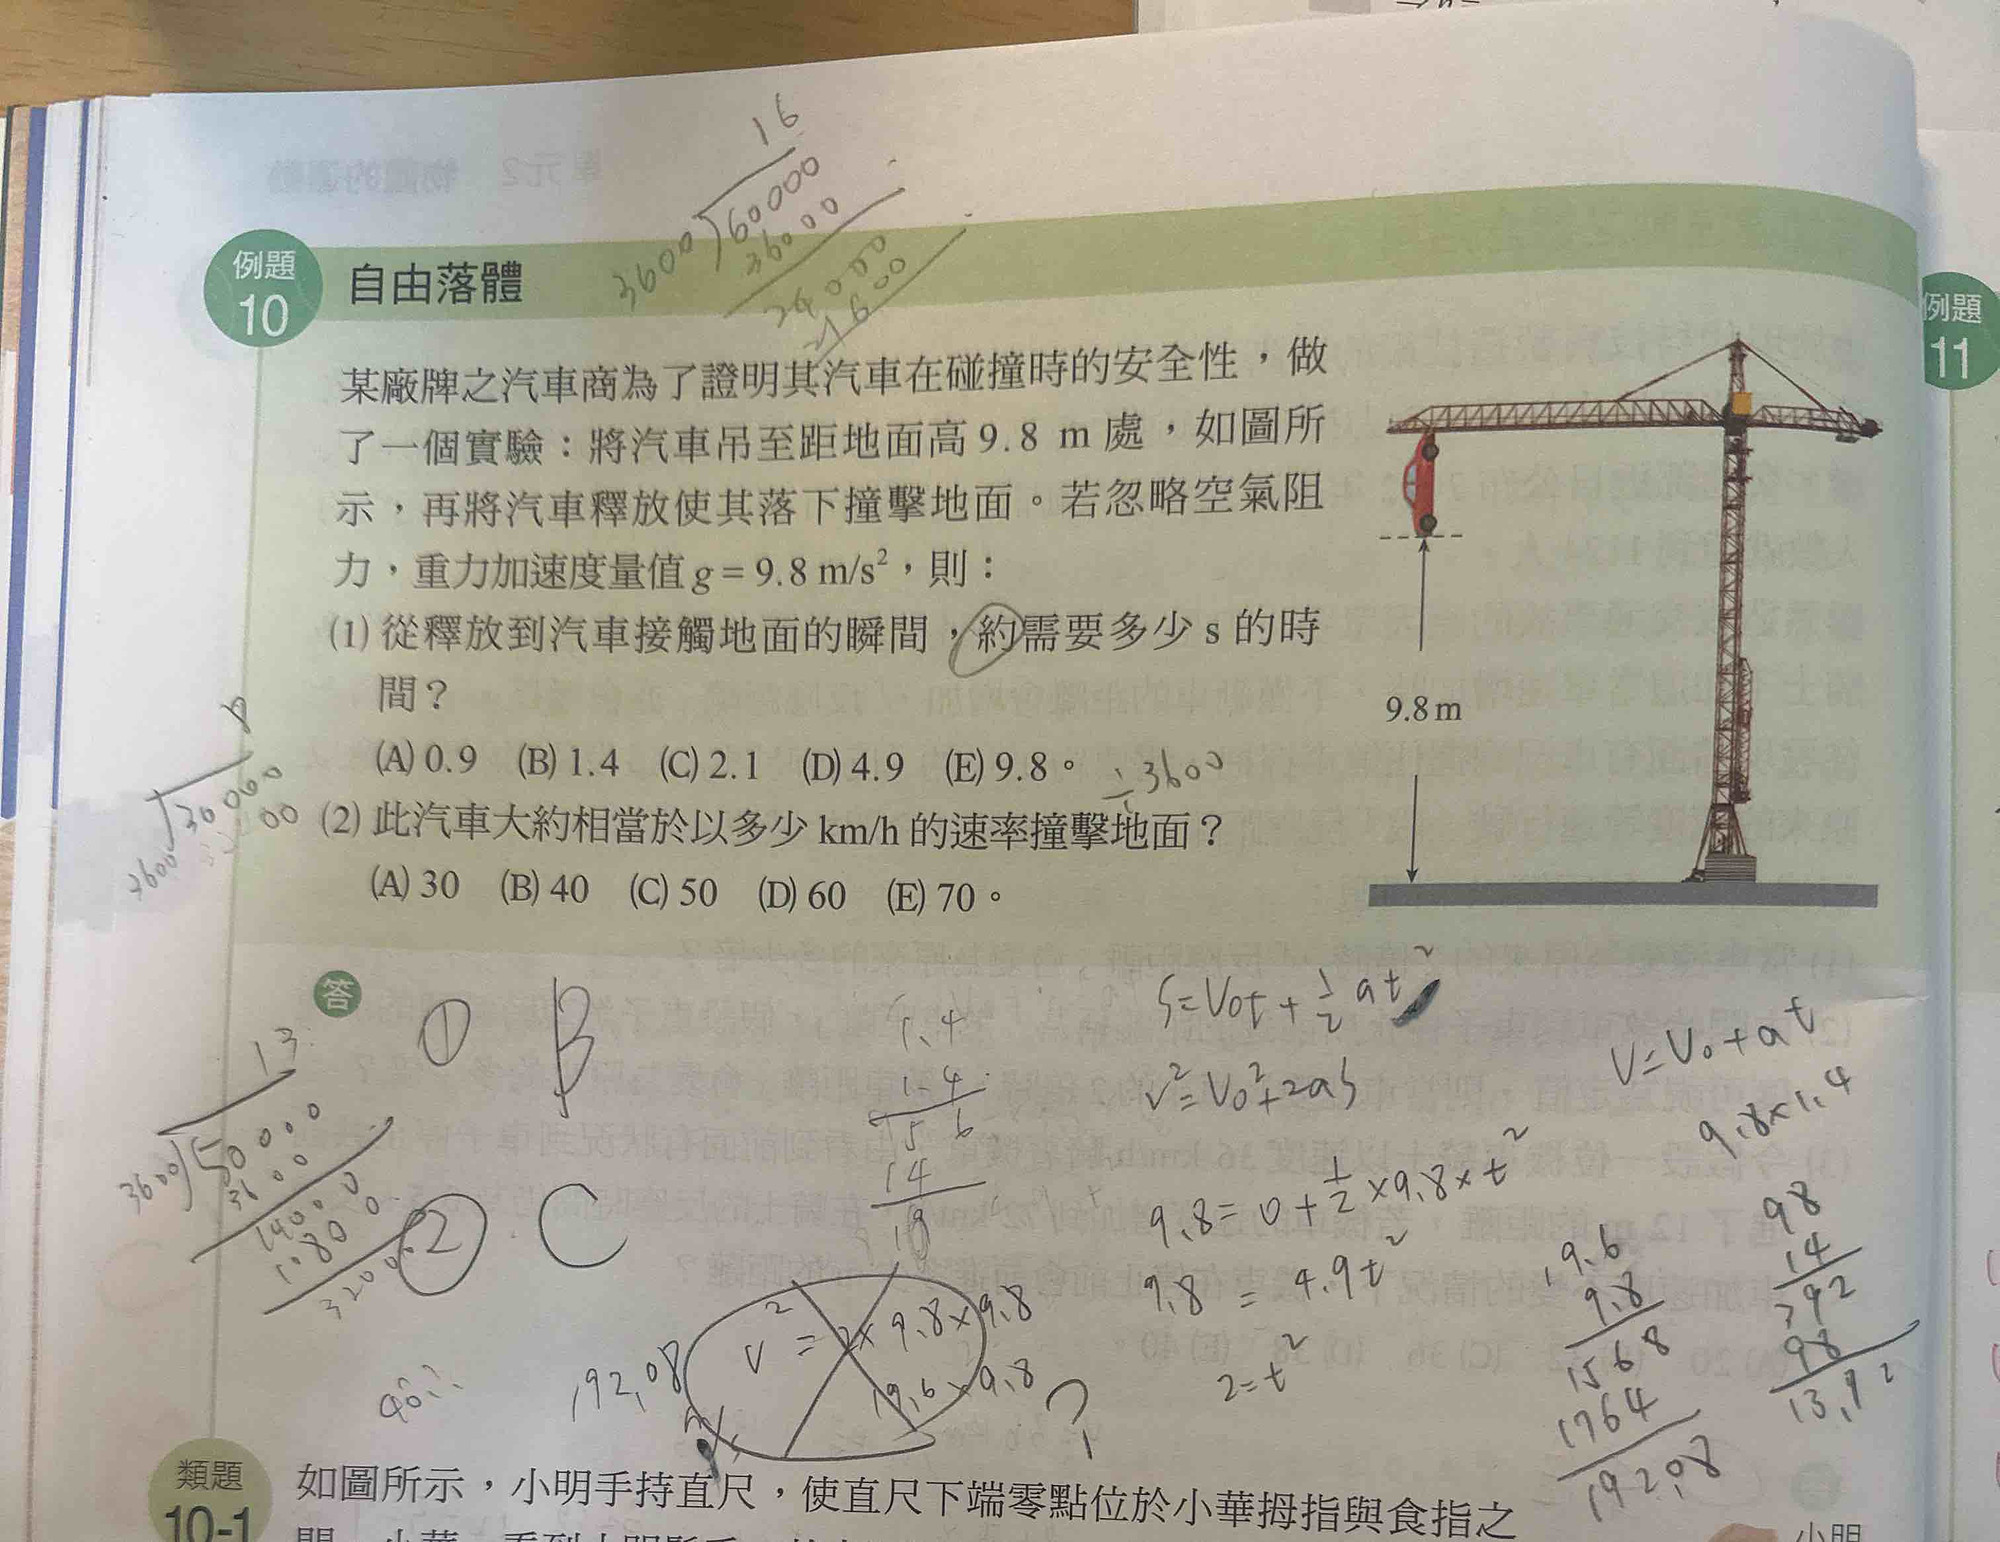 例題
10
自由落體
某廠牌之汽車商為了證明其汽車在碰撞時的安全性，做
了一個實驗：將汽車吊至距地面高 9.8 m 處，如圖所
示，再將汽車釋放使其落下撞擊地面。若忽略空氣阻
力，重力加速度量值 g = 9.8 m/s²，則：
(1) 從釋放到汽車接觸地面的瞬間，約需要多少 s 的時
間？
(A) 0.9 (B) 1.4 (C) 2.1 (D) 4.9 (E) 9.8。
÷3600
(2) 此汽車大約相當於以多少 km/h 的速率撞擊地面？
(A) 30 (B) 40 (C) 50 (D) 60 (E) 70。
9.8 m
例題
11
16
3600 60000
36000
8
3600 30000
答
① B
② C
13
3600 50000
3600
14000
10800
3200
1.4
1.4
56
14
S=V₀t + 1/2 at²
V²=V₀²+2aS
9.8 = 0 + 1/2 × 9.8 × t²
9.8 = 4.9t²
2 = t²
V = V₀ + at
9.8×1.4
98
14
392
98
13.92
19.6
9.8
1568
1764
192.08
V² = 2× 9.8×9.8
19.6×9.8
192.08
?
類題
10-1
如圖所示，小明手持直尺，使直尺下端零點位於小華拇指與食指之
小明